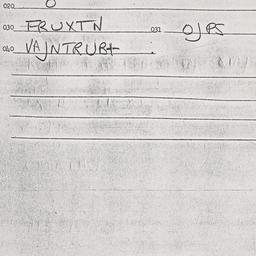 020
030 FRUXTN 031 OJPS
040 VAJNTRUBT